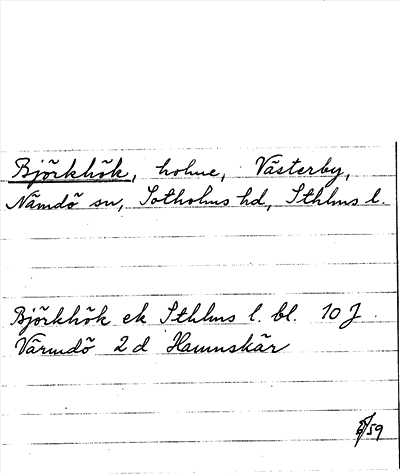 Björkhök, holme, Västerby,
Nämdö sn, Sotholms hd, Sthlms l.
Björkhök ek Sthlms l. bl. 10 J
Värmdö 2 d Hamnskär
/59